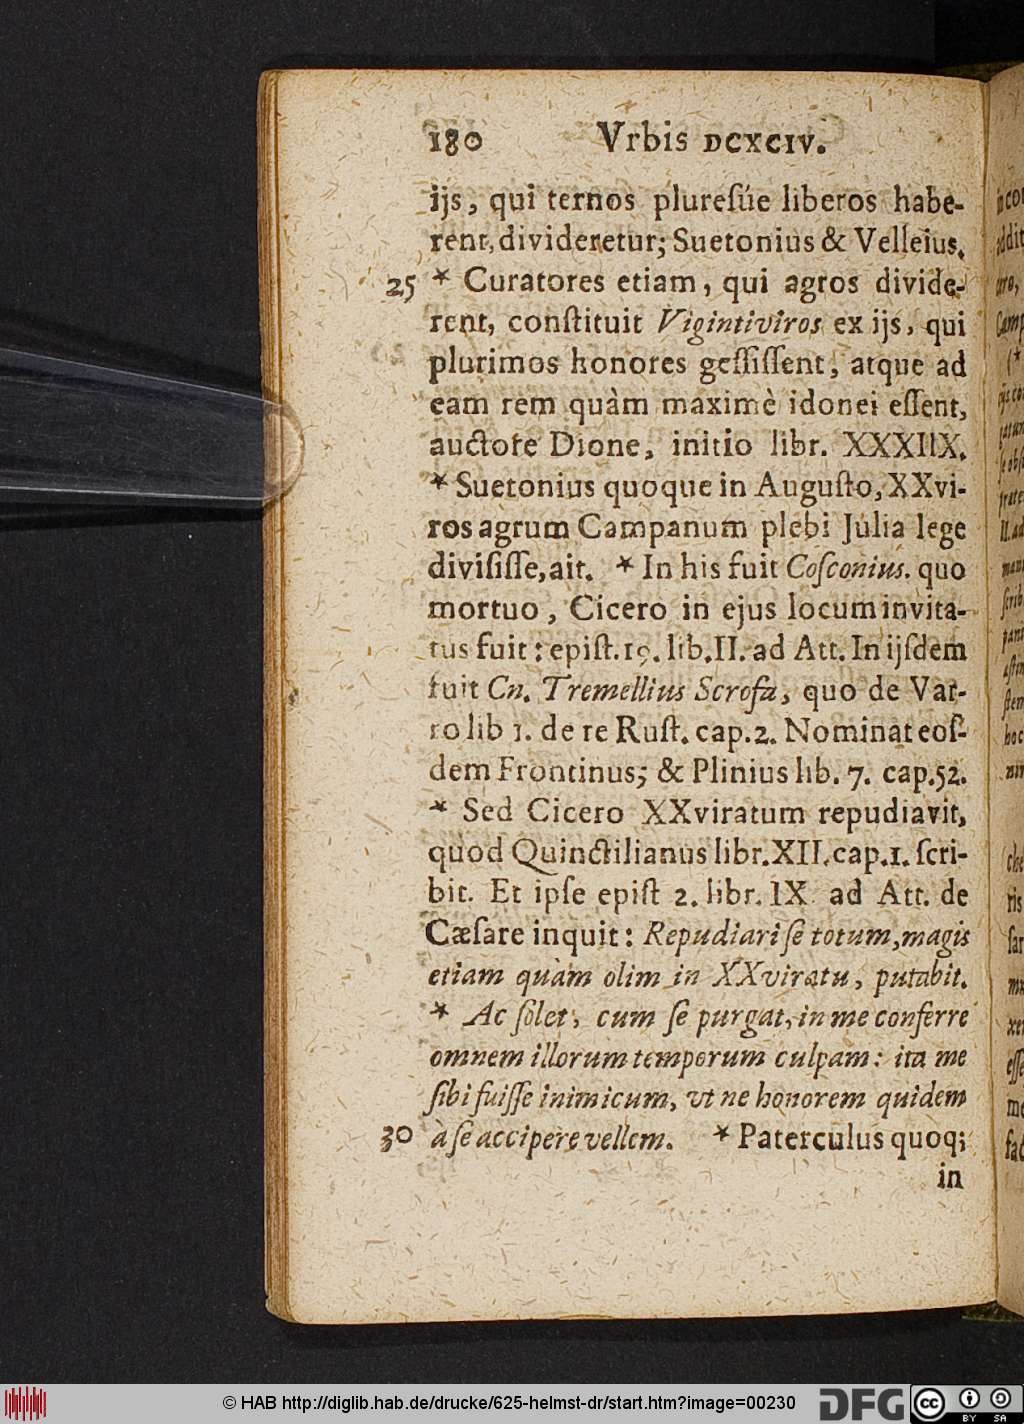 180 Vrbis DCXCIV.
ijs, qui ternos pluresúe liberos habe-
rent, divideretur; Suetonius & Velleius.
25 * Curatores etiam, qui agros divide-
rent, constituit Vigintiviros ex ijs, qui
plurimos honores gessissent, atque ad
eam rem quàm maximè idonei essent,
auctore Dione, initio libr. XXXIIX.
* Suetonius quoque in Augusto, XXvi-
ros agrum Campanum plebi Julia lege
divisisse, ait. * In his fuit Cosconius. quo
mortuo, Cicero in ejus locum invita-
tus fuit: epist. 19. lib. II. ad Att. In ijsdem
fuit Cn. Tremellius Scrofa, quo de Var-
ro lib 1. de re Rust. cap. 2. Nominat eos-
dem Frontinus; & Plinius lib. 7. cap. 52.
* Sed Cicero XXviratum repudiavit,
quòd Quinctilianus libr. XII. cap. 1. scri-
bit. Et ipse epist 2. libr. IX ad Att. de
Cæsare inquit: Repudiari se totum, magis
etiam quàm olim in XXviratu, putabit.
* Ac solet, cum se purgat, in me conferre
omnem illorum temporum culpam: ita me
sibi fuisse inimicum, vt ne honorem quidem
30 à se accipere vellem. * Paterculus quoq;
in
© HAB http://diglib.hab.de/drucke/625-helmst-dr/start.htm?image=00230
DFG
cc BY SA